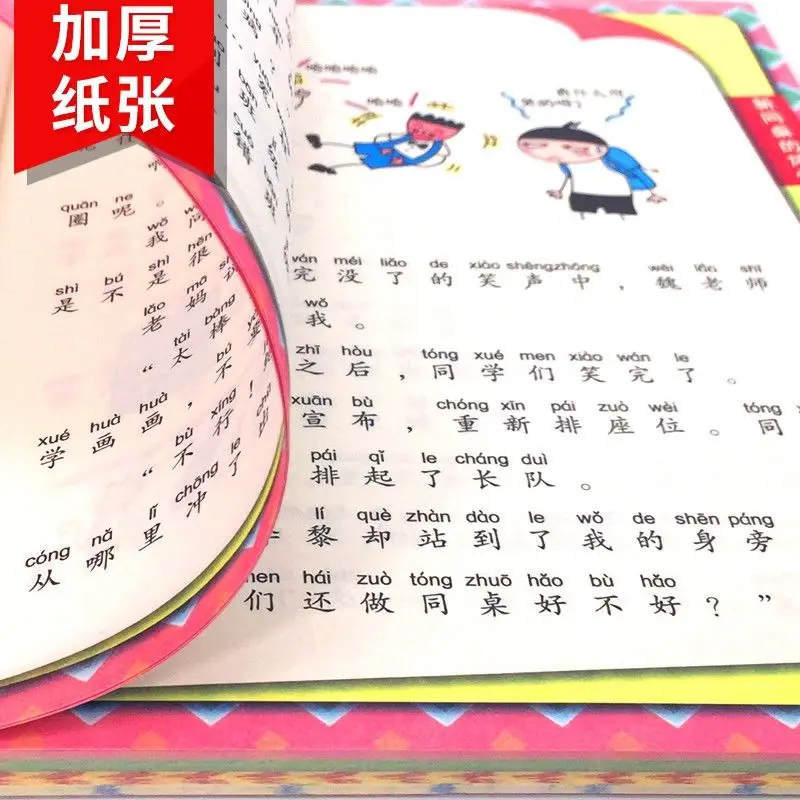 加厚
纸张
哈哈哈哈
哈哈
有什么可
笑的啊?
新同桌的
quān ne
圈呢。
wǒ
我问
shì bú shì hěn
是不是很
lǎo mā
老妈
tài bàng
“太棒
xué huà huà, bù
学画画，不
bù xíng
“不行！
cóng nǎ lǐ chōng le
从哪里冲了
wán méi liǎo de xiào shēng zhōng wèi lǎo shī
完没了的笑声中，魏老师
wǒ
我。
zhī hòu tóng xué men xiào wán le
之后，同学们笑完了。
xuān bù chóng xīn pái zuò wèi tóng
宣布，重新排座位。同
pái qǐ le cháng duì
排起了长队。
lí què zhàn dào le wǒ de shēn páng
黎却站到了我的身旁
men hái zuò tóng zhuō hǎo bù hǎo
们还做同桌好不好？”